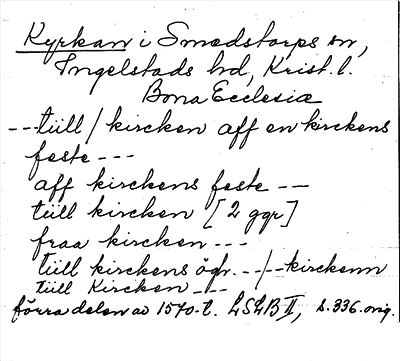 Kyrkan i Smedstorps sn,
Ingelstads hd, Krist. l.
Bona Ecclesia
---tiill / kircken aff en kirckens
feste ---
aff kirckens feste --
tiill kircken [2 ggr]
fraa kircken ---
tiill kirckens ögr. --/-- kirckenn
tiill Kircken ---
förra delen av 1570-t. LSLB II, s. 336. orig.